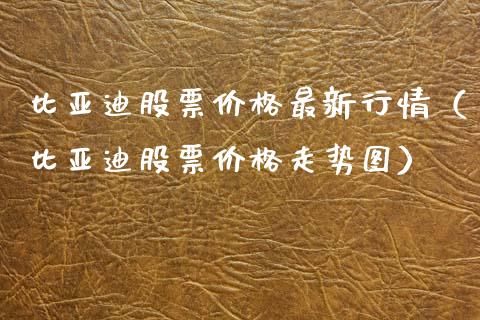 比亚迪股票价格最新行情（
比亚迪股票价格走势图）